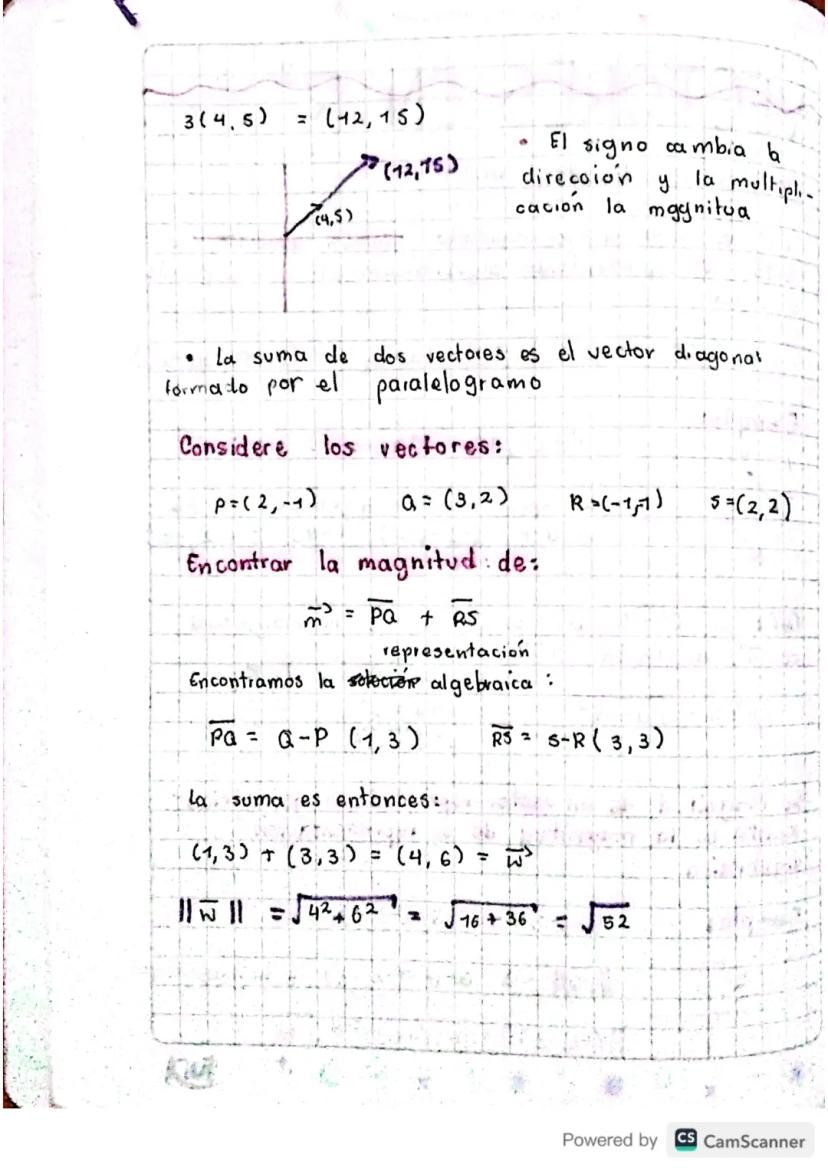 3(4,5) = (12,15)
(12,15)
(4,5)
• El signo cambia la
dirección y la multipli-
cación la magnitud
• La suma de dos vectores es el vector diagonal
formado por el paralelogramo
Considere los vectores:
P=(2,-1) Q=(3,2) R=(-1,-1) S=(2,2)
Encontrar la magnitud de:
m⃗ = P̅Q̅ + R̅S̅
representación
Encontramos la solución algebraica:
P̅Q̅ = Q-P (1,3) R̅S̅ = S-R (3,3)
La suma es entonces:
(1,3) + (3,3) = (4,6) = w⃗
||w̅|| = √4²+6² = √16+36 = √52
Powered by CS CamScanner